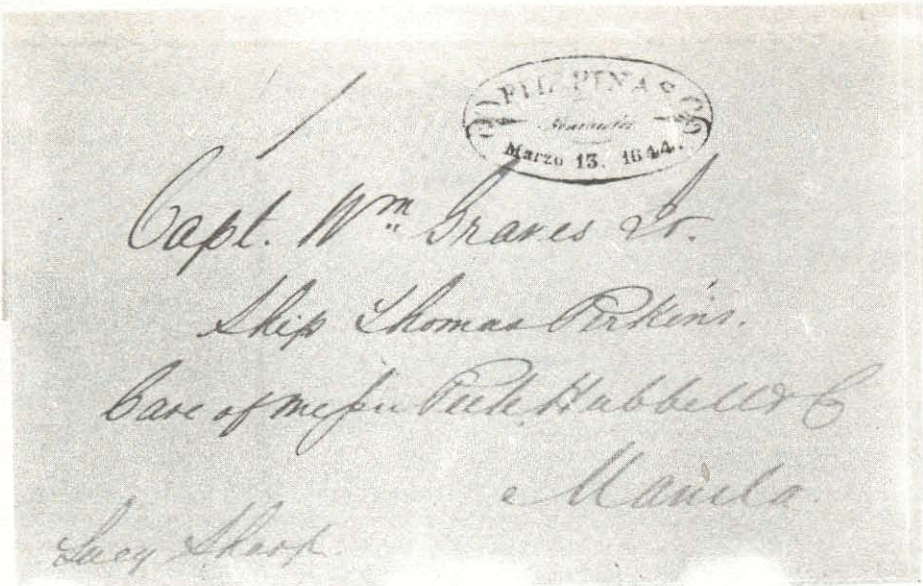 FILIPINAS
Marzo 13. 1844.
Capt. Wm Graves Jr.
Ship Thomas Perkins.
Care of Messrs Peele, Hubbell & Co
Manila.
Lucy Sharp